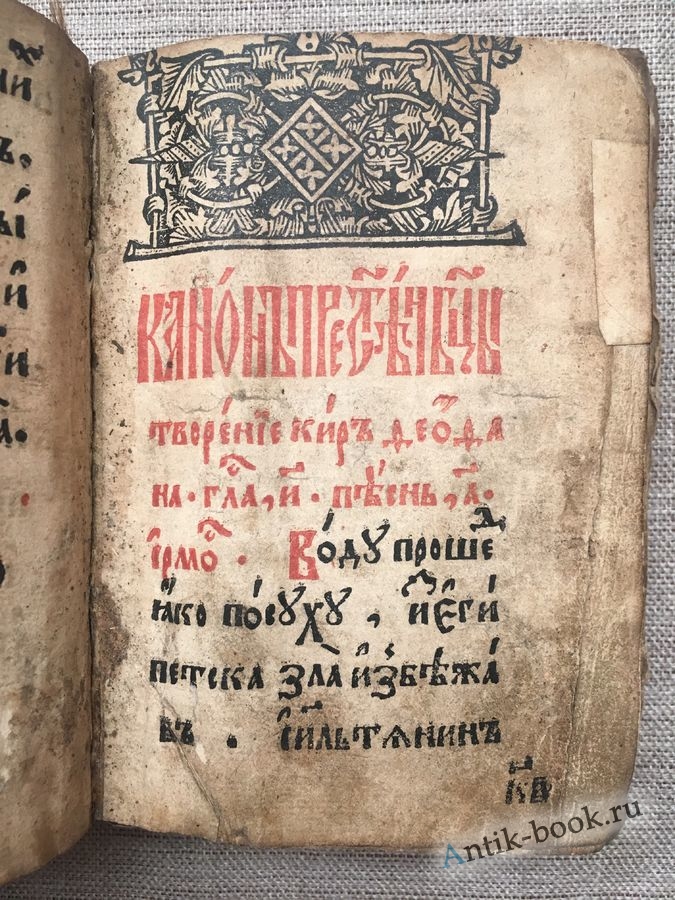 КАНО́НЪ ПРЕСТ҃Ѣ́Й БЦ҃Ѣ
творе́нїе ки́ръ ѳеоѳа
на · гла́, и҃ · пѣ́снь, а҃ ·
і҆рмо́ · Во́ду проше́д
ꙗ҆́ко по́суху , и҆ є҆ги́
петска зла̀ и҆збѣжа́
въ . і҆и҃льтѧнинъ
Antik-book.ru